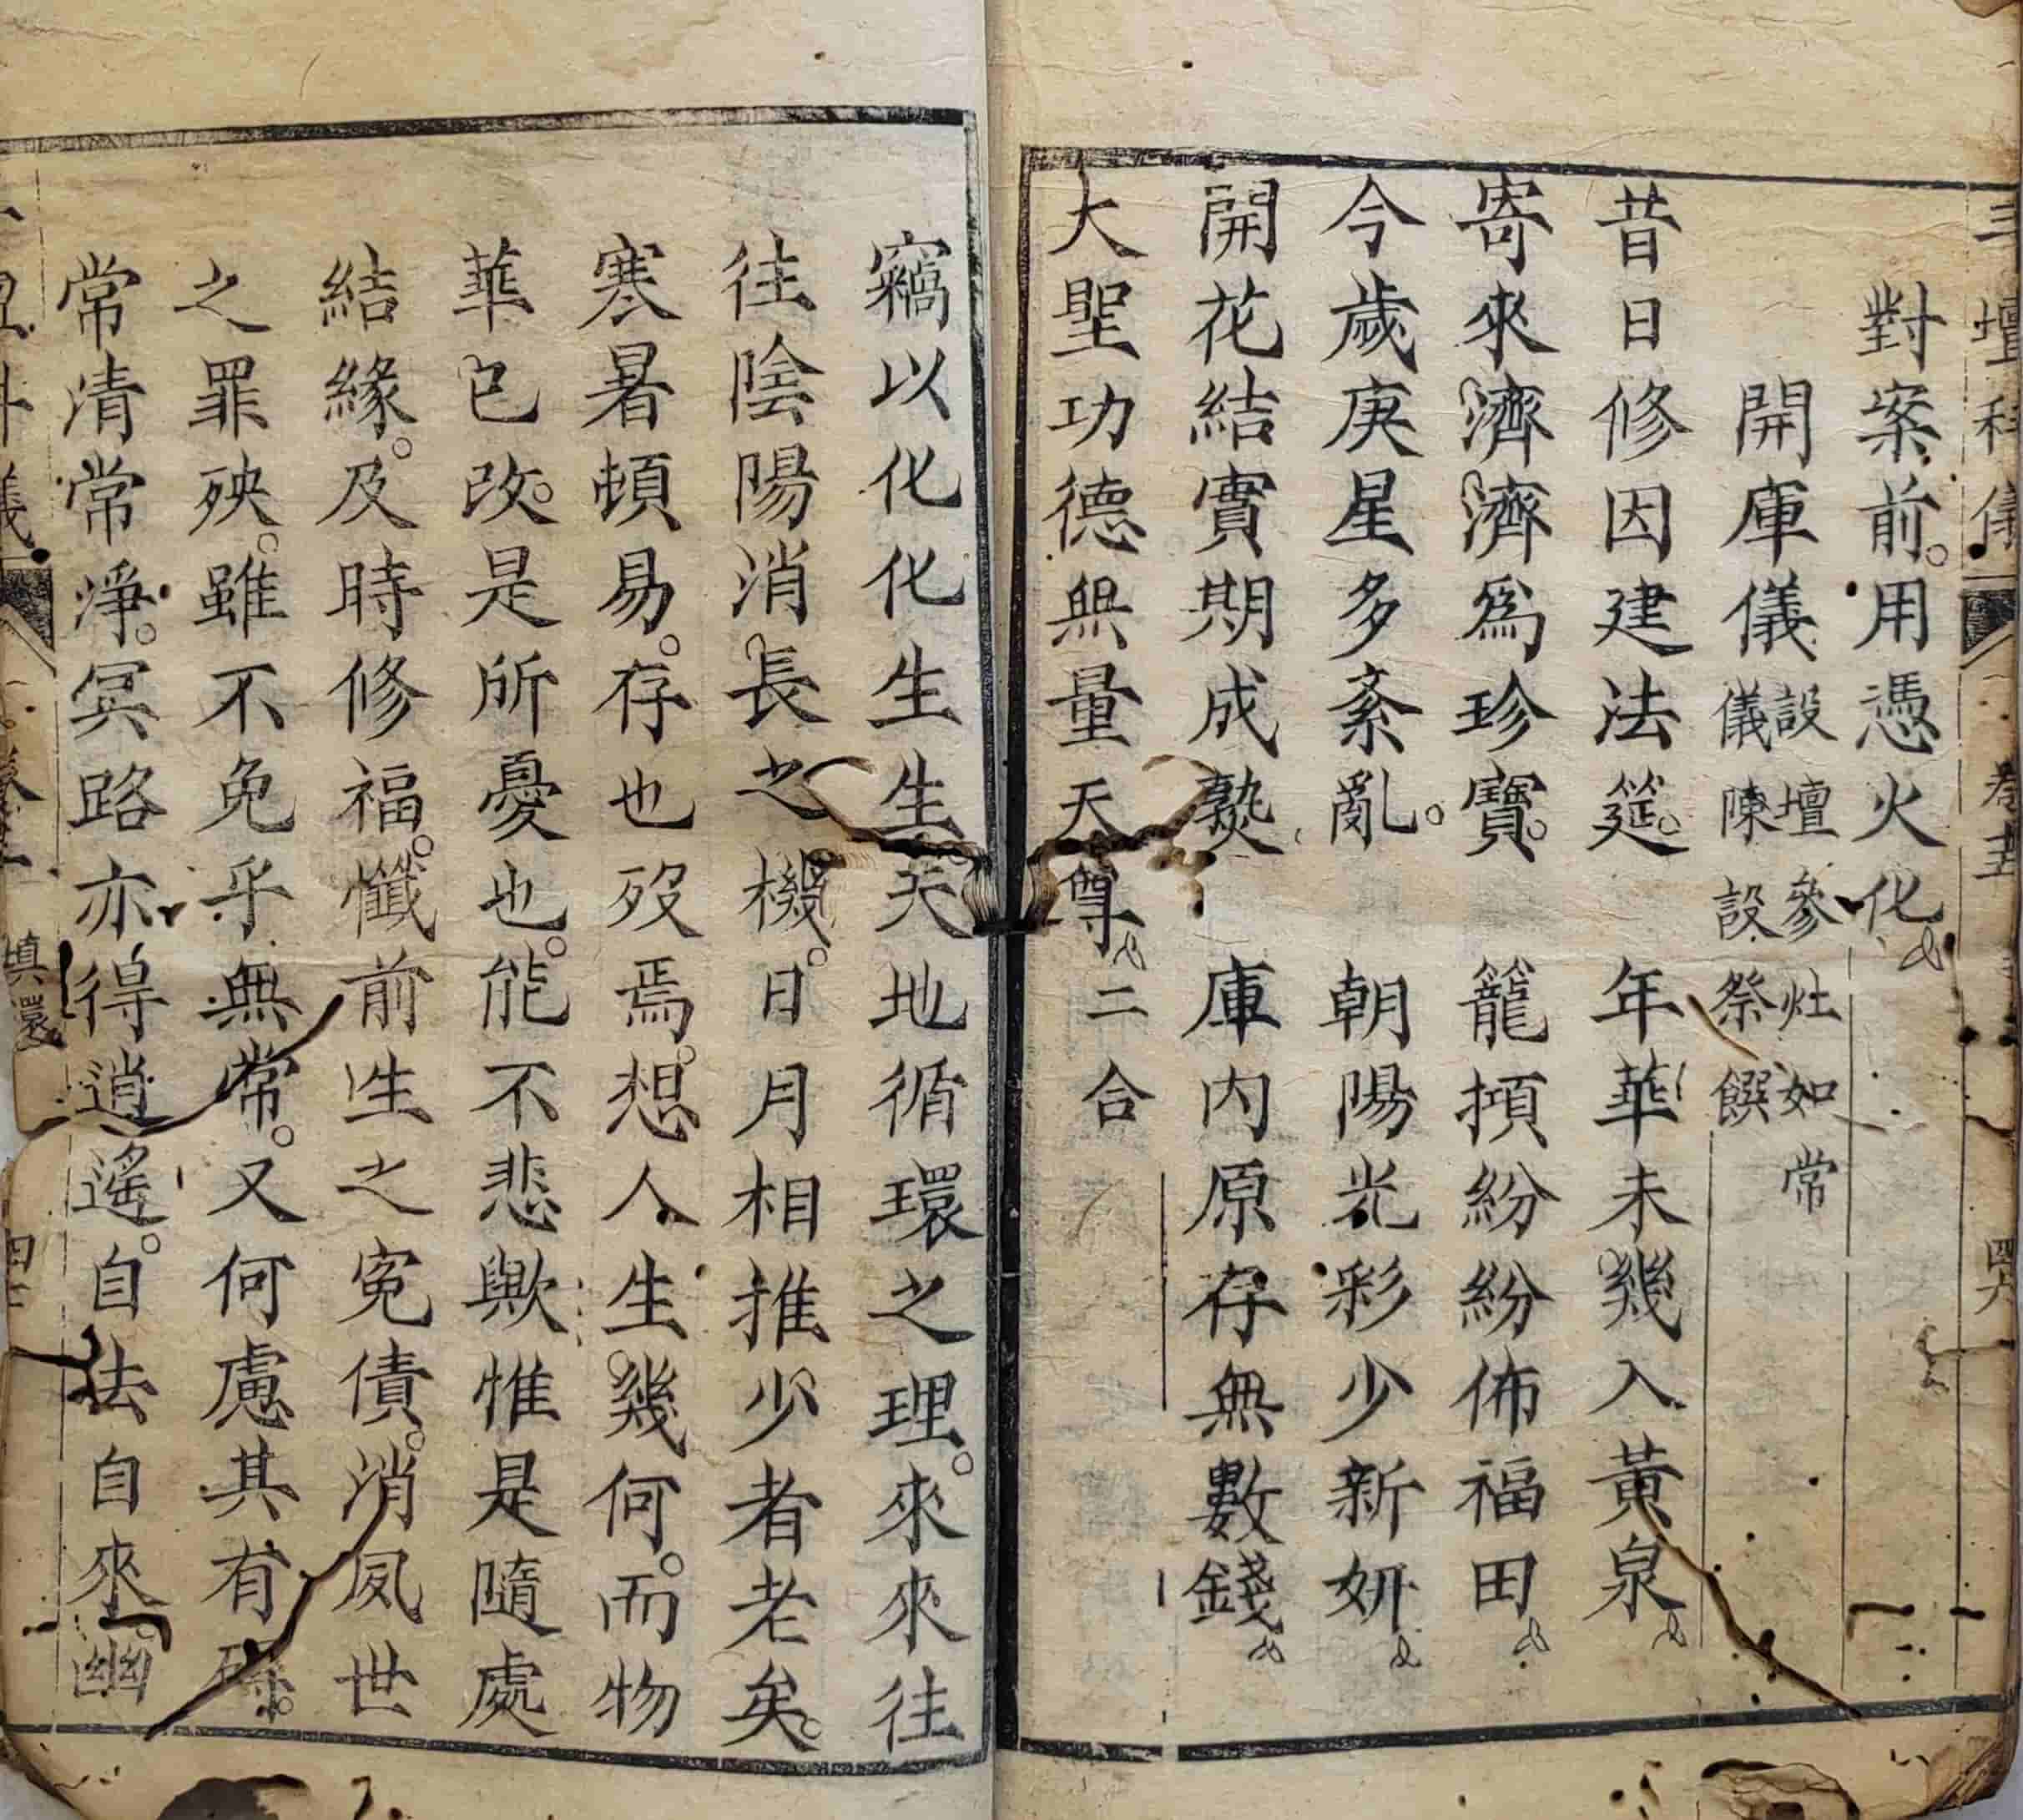 壇科儀
對案前。用憑火化
開庫儀 設壇參灶如常 儀陳設祭饌
昔日修因建法筵。年華未幾入黃泉
寄來濟濟爲珍寶。籠摃紛紛佈福田
今歲庚星多紊亂。朝陽光彩少新妍
開花結實期成熟 庫内原存無數錢
大聖功德無量天尊 二合
竊以化化生生。天地循環之理。來來往
往陰陽消長之機。日月相推少者老矣。
寒暑頓易。存也歿焉。想人生幾何。而物
華已改。是所憂也。能不悲歟惟是隨處
結緣。及時修福。懺前生之寃債。消夙世
之罪殃。雖不免乎無常。又何慮其有
常清常淨。冥路亦得逍遙。自去自來。幽
填還